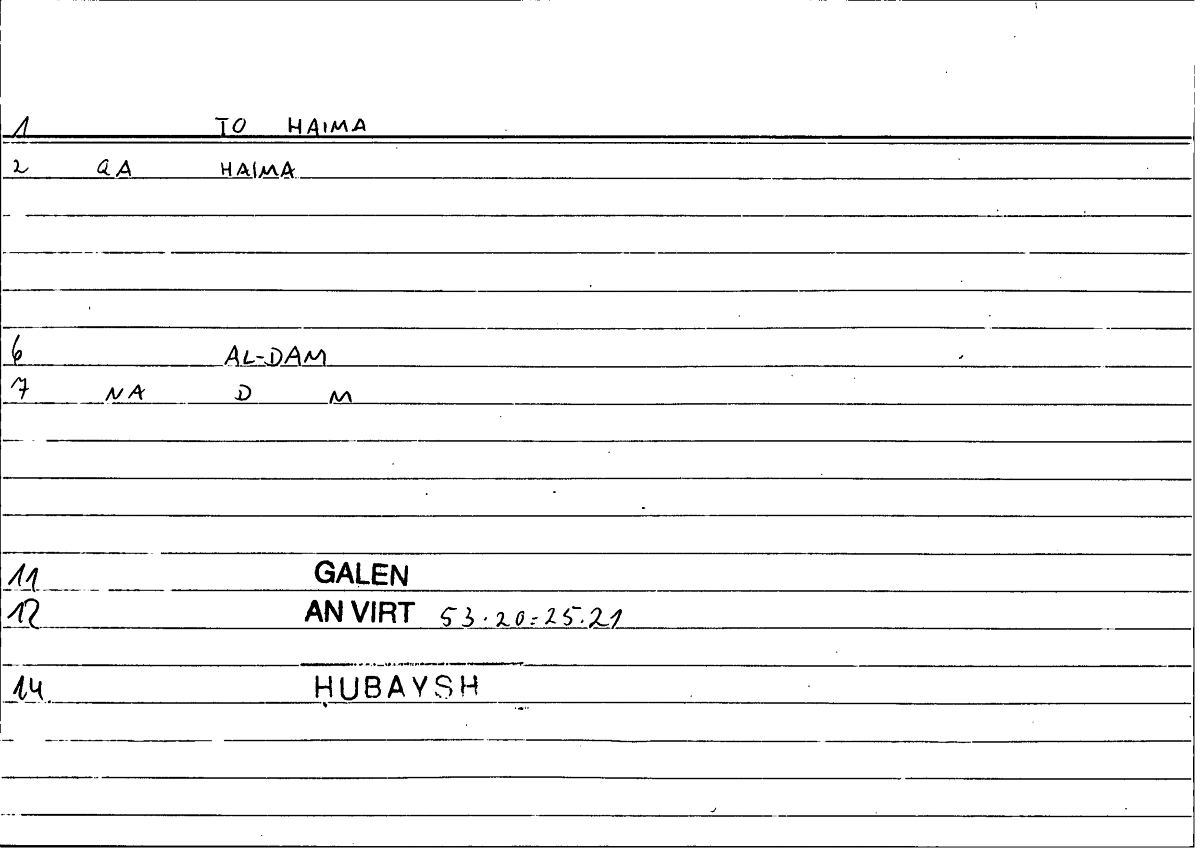 1 TO HAIMA
2 QA HAIMA
6 AL-DAM
7 NA D M
11 GALEN
12 AN VIRT 53.20=25.21
14 ḤUBAYSH